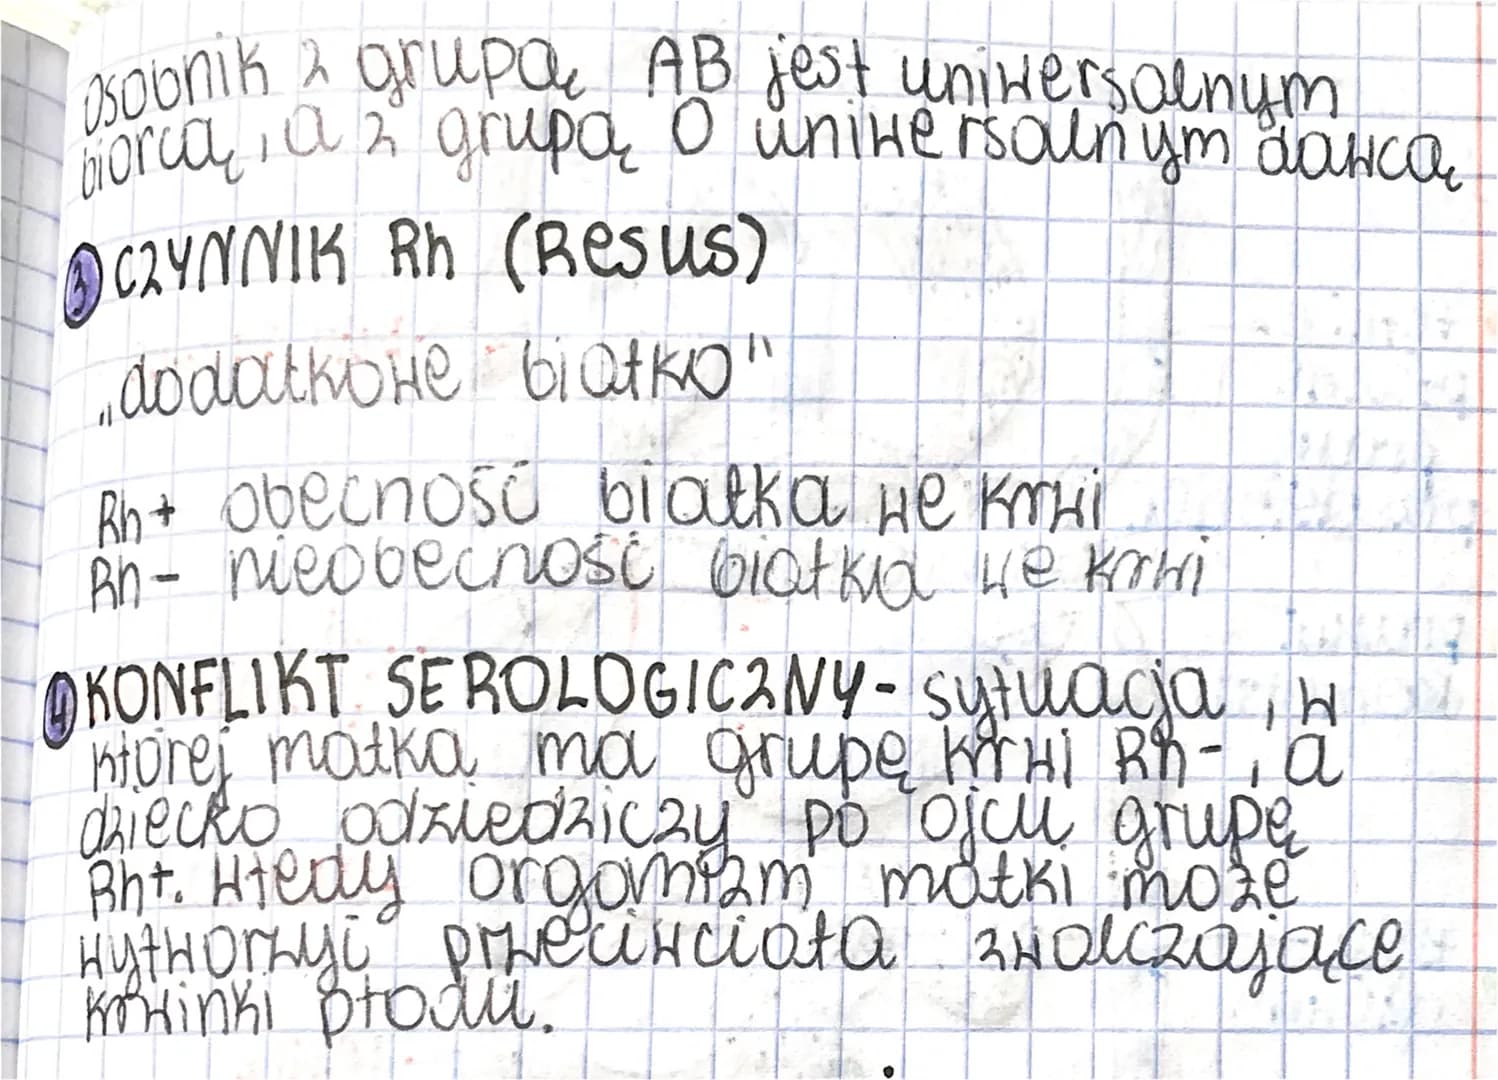 Osobnik z grupą AB jest uniwersalnym
biorcą, a z grupą 0 uniwersalnym dawcą
3 CZYNNIK Rh (Resus)
„dodatkowe białko"
Rh+ obecność białka we krwi
Rh- nieobecność białka we krwi
4 KONFLIKT SEROLOGICZNY- sytuacja, w
której matka ma grupę krwi Rh-, a
dziecko odziedziczy po ojcu grupę
Rh+. Wtedy organizm matki może
wytworzyć przeciwciała zwalczające
krwinki płodu.